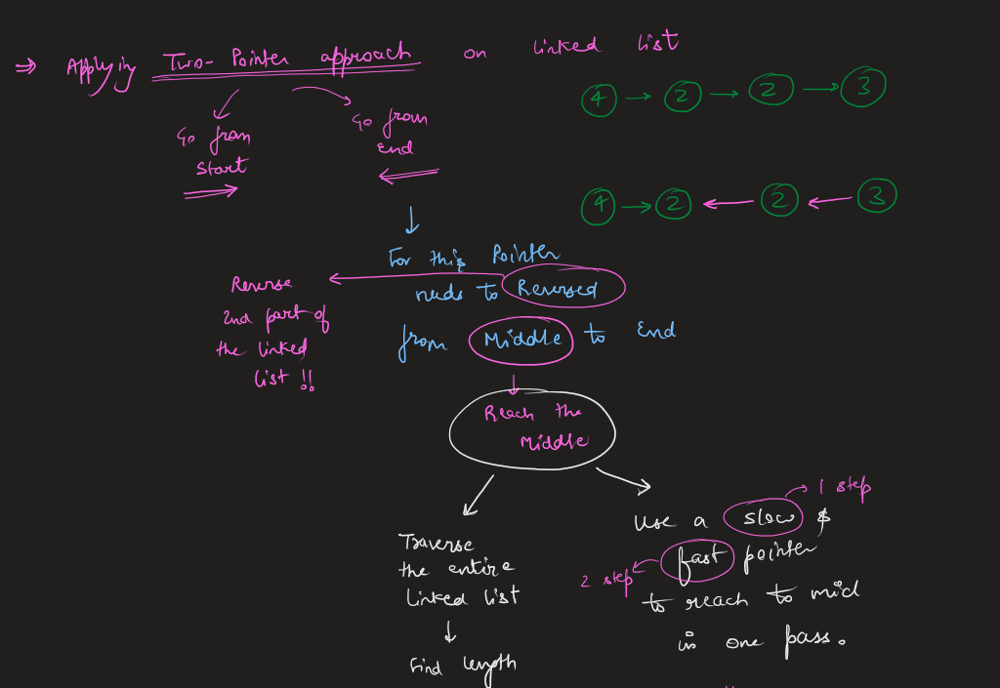 ⇒ Applying Two-Pointer approach on linked list
4 → 2 → 2 → 3
Go from
Start
Go from
End
4 → 2 ← 2 ← 3
For this Pointer
needs to Reversed
from Middle to End
Reverse
2nd part of
the linked
list !!
Reach the
Middle
Traverse
the entire
linked list
Find length
1 step
Use a slow &
fast pointer
2 step
to reach to mid
in one pass.